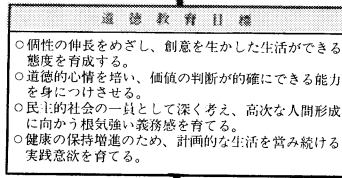 道徳教育目標
○個性の伸長をめざし、創意を生かした生活ができる
態度を育成する。
○道徳的心情を培い、価値の判断が的確にできる能力
を身につけさせる。
○民主的社会の一員として深く考え、高次な人間形成
に向かう根気強い義務感を育てる。
○健康の保持増進のため、計画的な生活を営み続ける
実践意欲を育てる。